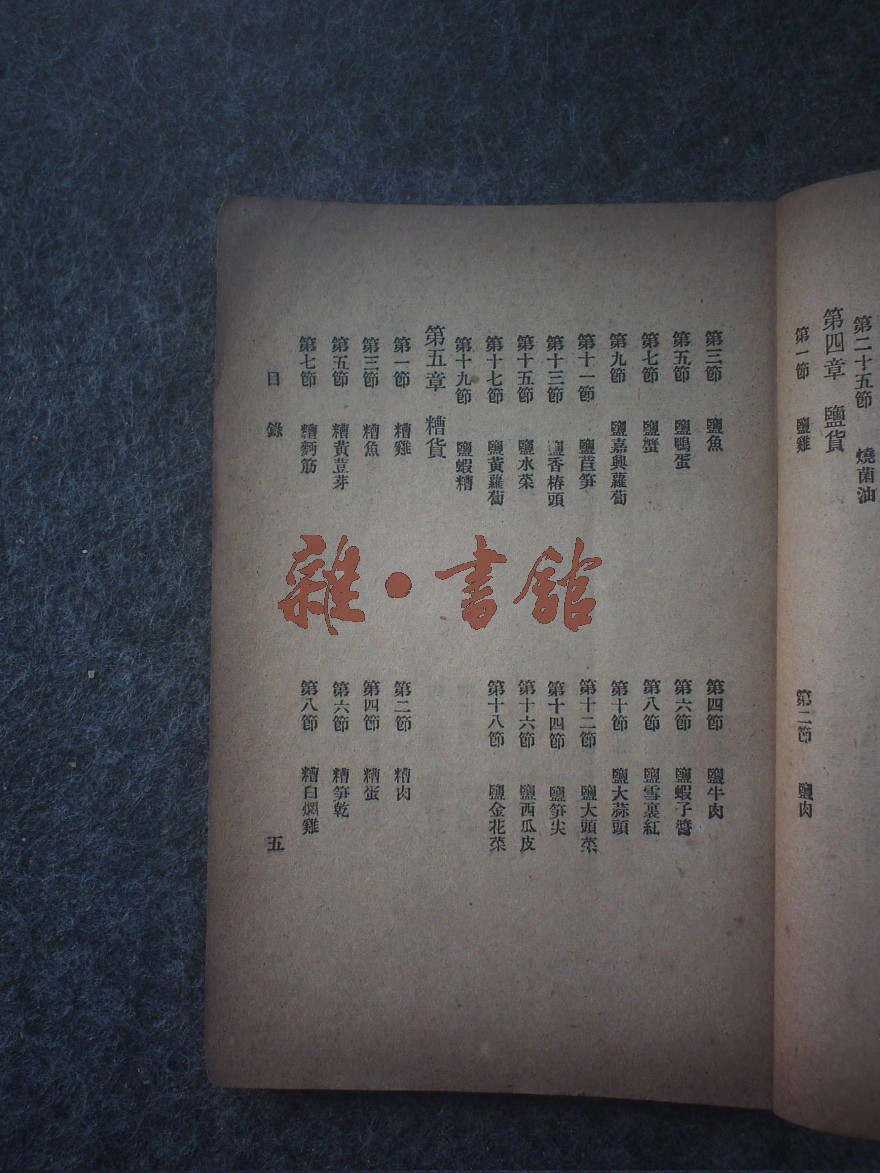 第二十五節　燒菌油
第四章　鹽貨
第一節　鹽雞　第二節　鹽肉
第三節　鹽魚　第四節　鹽牛肉
第五節　鹽鴨蛋　第六節　鹽蝦子醬
第七節　鹽蟹　第八節　鹽雪裏紅
第九節　鹽嘉興蘿蔔　第十節　鹽大蒜頭
第十一節　鹽萵笋　第十二節　鹽大頭菜
第十三節　鹽香椿頭　第十四節　鹽笋尖
第十五節　鹽水菜　第十六節　鹽西瓜皮
第十七節　鹽黃蘿蔔　第十八節　鹽金花菜
第十九節　鹽蝦糟
第五章　糟貨
第一節　糟雞　第二節　糟肉
第三節　糟魚　第四節　糟蛋
第五節　糟黃荳芽　第六節　糟笋乾
第七節　糟麪筋　第八節　糟白燜雞
目錄　五
雜·書館